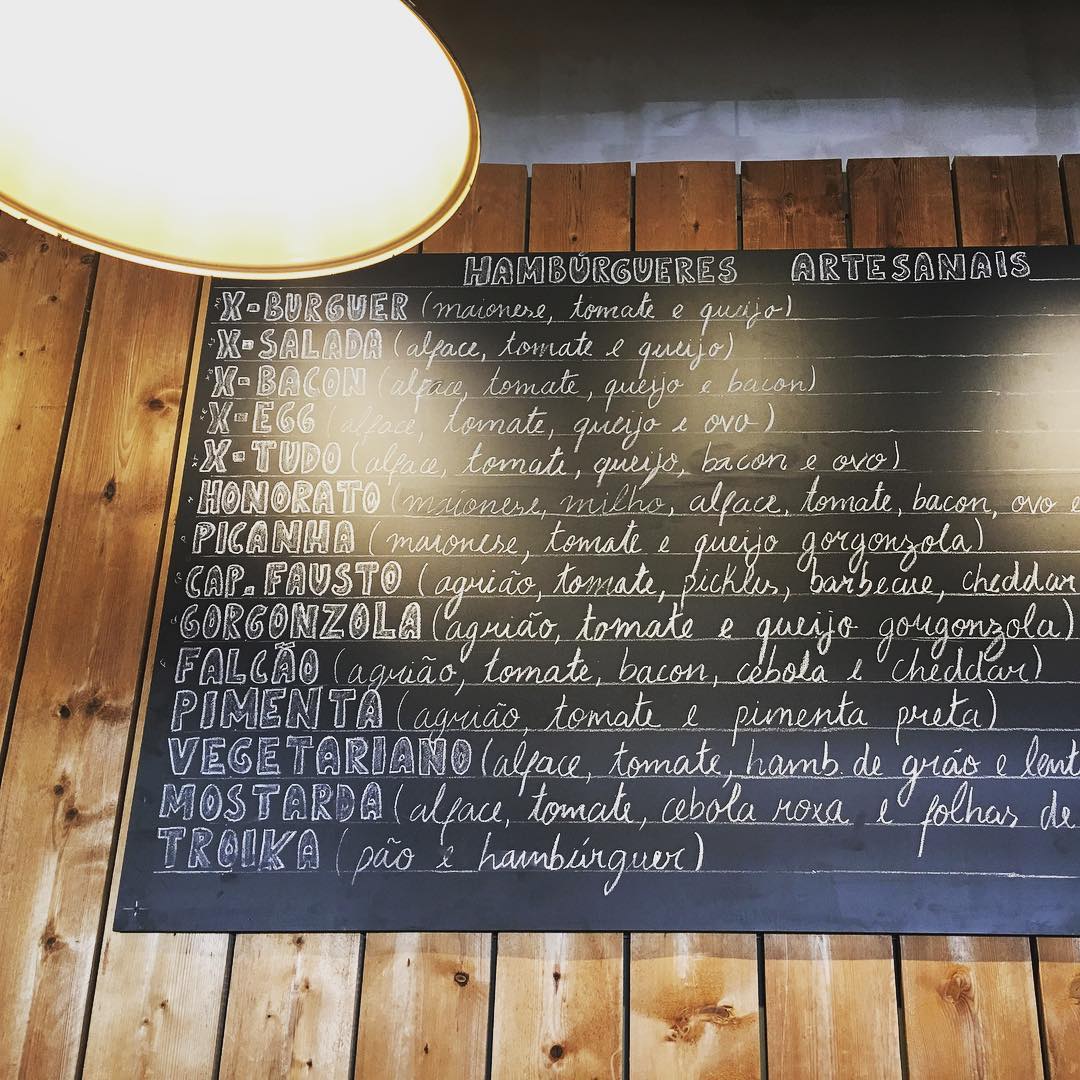 HAMBÚRGUERES ARTESANAIS
X-BURGUER (maionese, tomate e queijo)
X-SALADA (alface, tomate e queijo)
X-BACON (alface, tomate, queijo e bacon)
X-EGG (alface, tomate, queijo e ovo)
X-TUDO (alface, tomate, queijo, bacon e ovo)
HONORATO (maionese, milho, alface, tomate, bacon, ovo e
PICANHA (maionese, tomate e queijo gorgonzola)
CAP. FAUSTO (agrião, tomate, pickles, barbecue, cheddar
GORGONZOLA (agrião, tomate e queijo gorgonzola)
FALCÃO (agrião, tomate, bacon, cebola e cheddar)
PIMENTA (agrião, tomate e pimenta preta)
VEGETARIANO (alface, tomate, hamb. de grão e lent
MOSTARDA (alface, tomate, cebola roxa e folhas de
TROIKA (pão e hambúrguer)